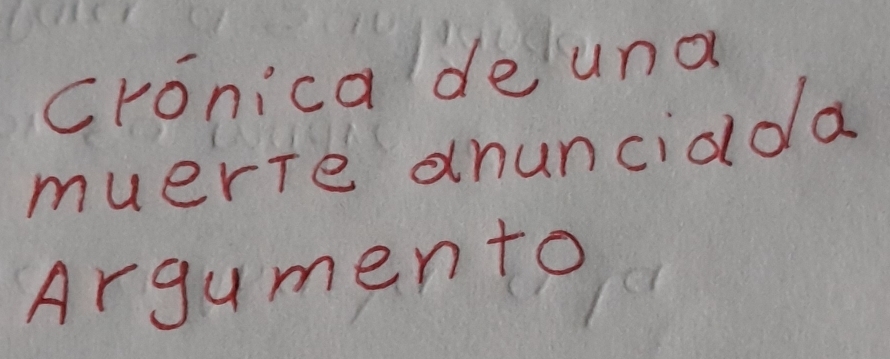 Crónica de una
muerte anunciada
Argumento